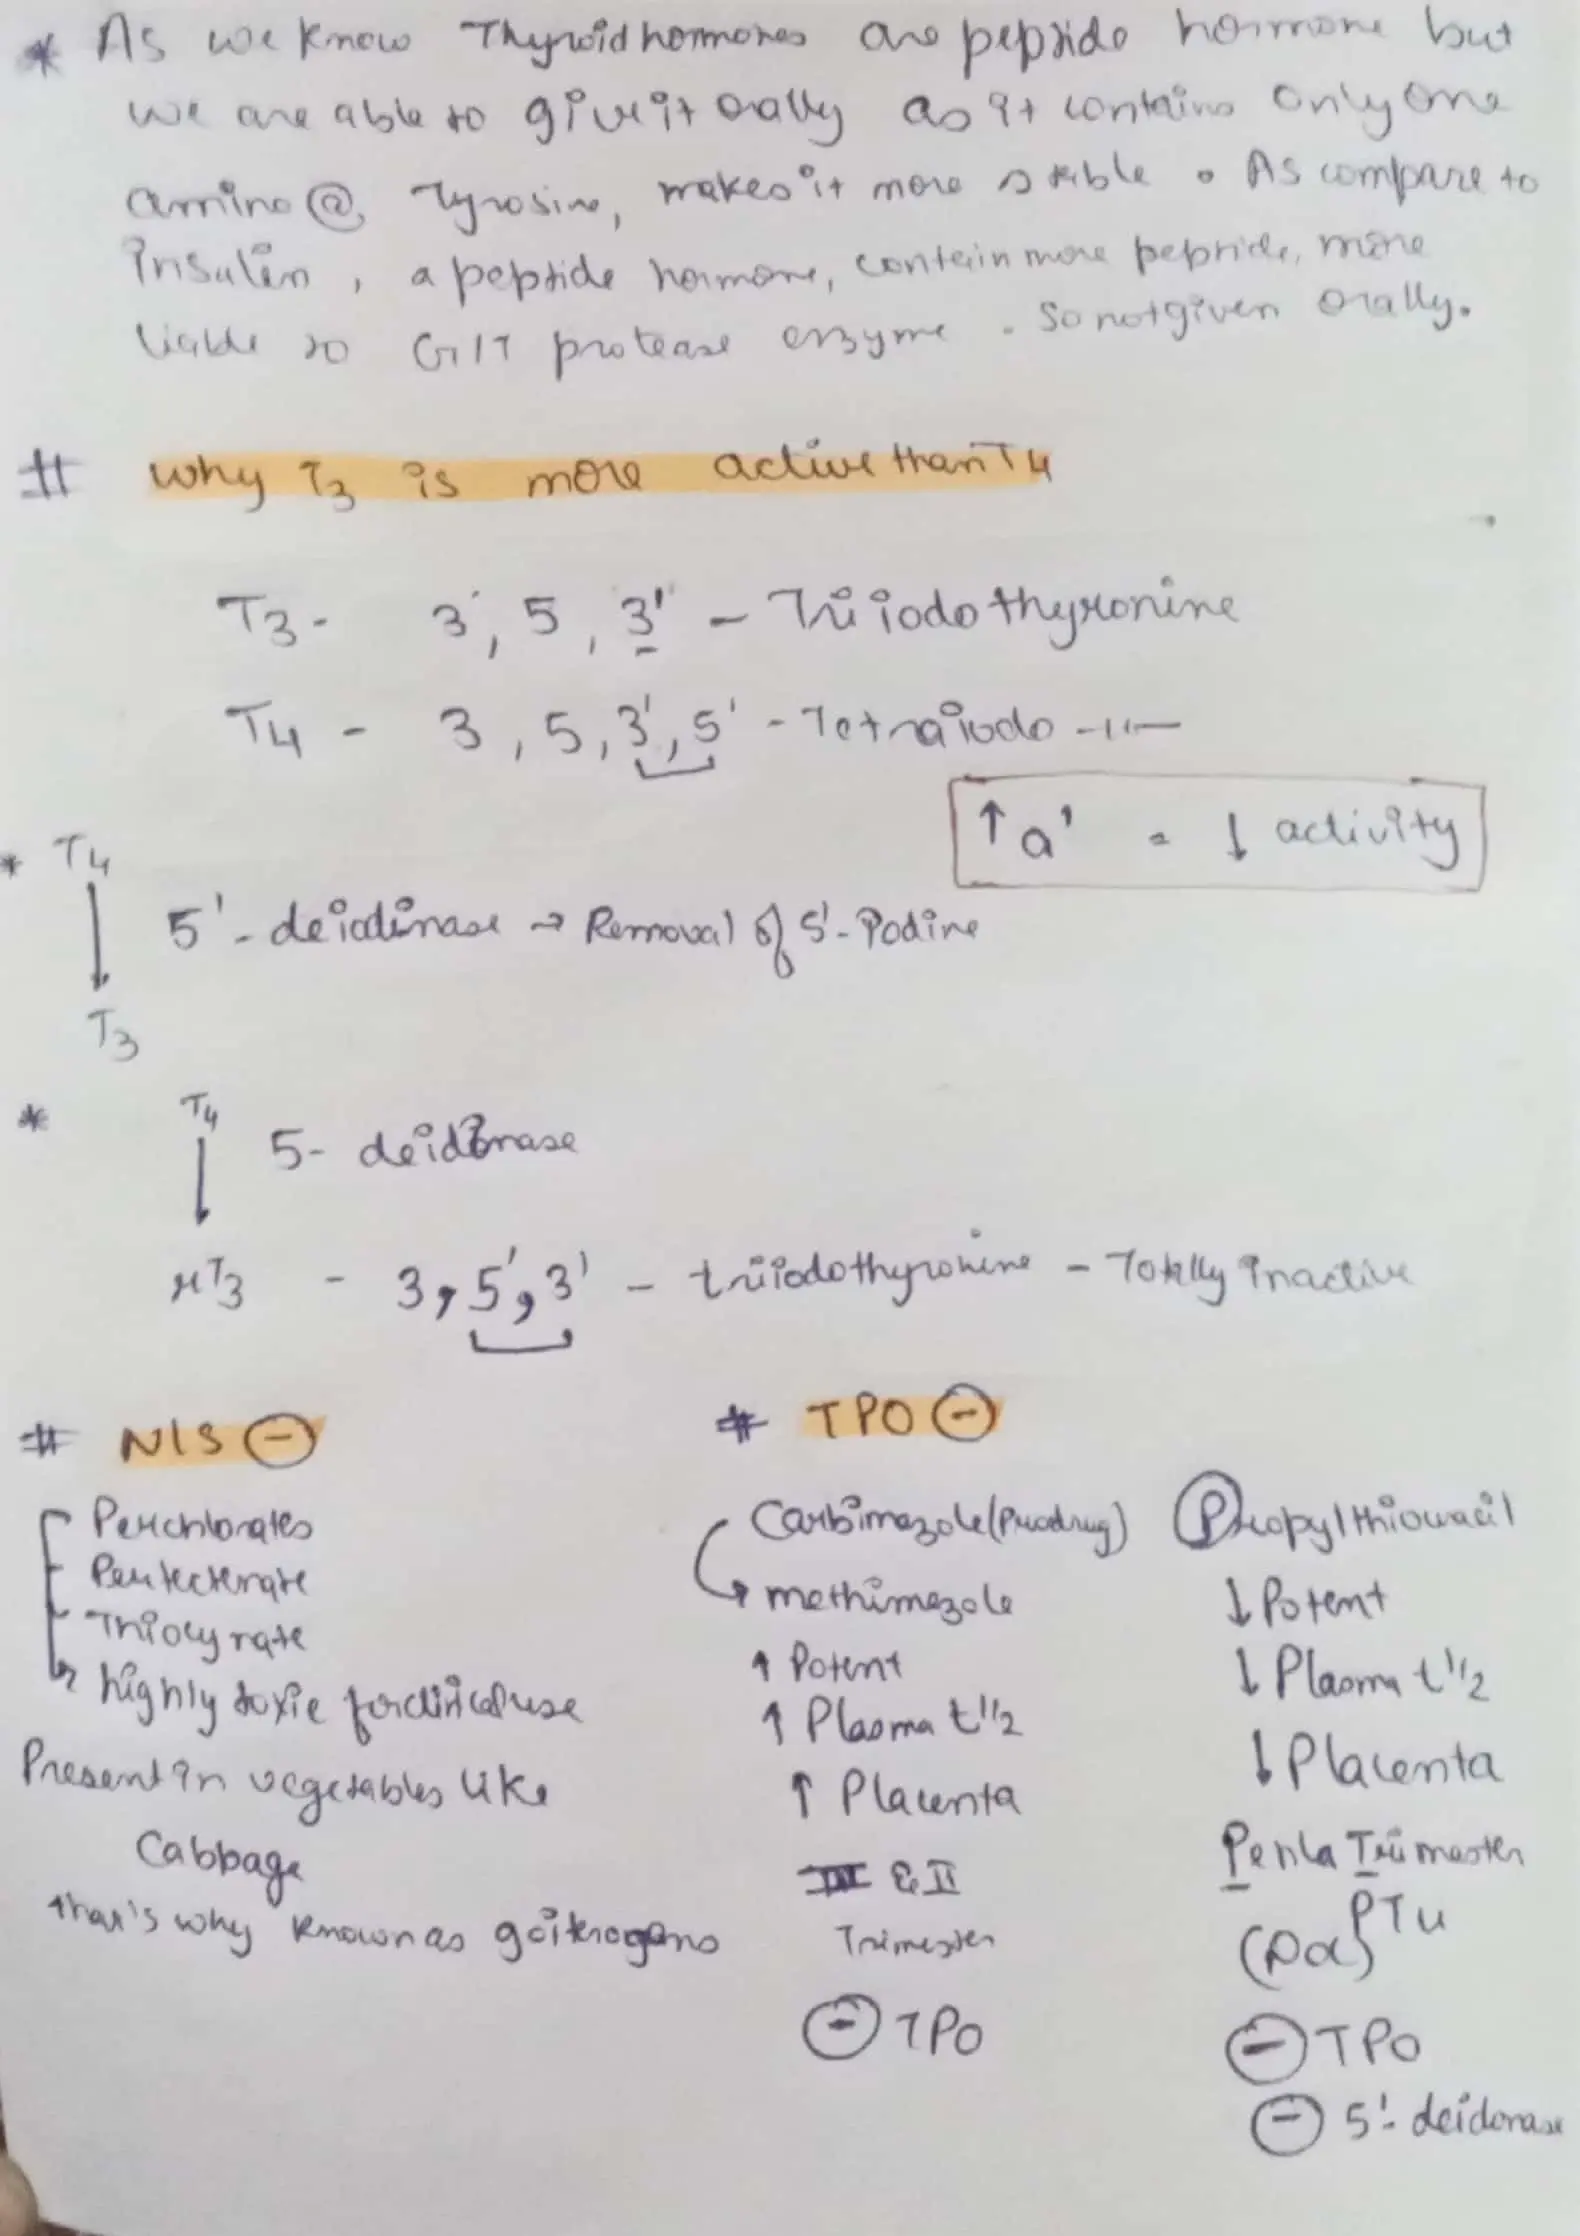 * As we know Thyroid hormones are peptide hormone but
we are able to give it orally as it contains only one
amino @, Tyrosine, makes it more stable . As compare to
insulin , a peptide hormone, contain more peptide, more
liable to GIT protease enzyme . So not given orally.
# Why T3 is more active than T4
T3 - 3, 5, 3' - Triiodothyronine
T4 - 3, 5, 3', 5' - Tetraiodo -11-
↑ a' = ↓ activity
* T4
↓ 5'-deiodinase → Removal of 5'-Iodine
T3
* T4
↓ 5- deidonase
rT3 - 3, 5', 3' - triiodothyronine - Totally inactive
# NIS ⊖
Perchlorates
Pertecterate
Thiocyrate
highly toxic for clinical use
Present in vegetables like
Cabbage
that's why known as goitrogens
# TPO ⊖
Carbimazole (Prodrug)
methimazole
↑ Potent
↑ Plasma t1/2
↑ Placenta
& II
Trimester
⊖ TPO
Propylthiouracil
↓ Potent
↓ Plasma t1/2
↓ Placenta
Pehla Trimester
PTU
⊖ TPO
⊖ 5'- deidonase